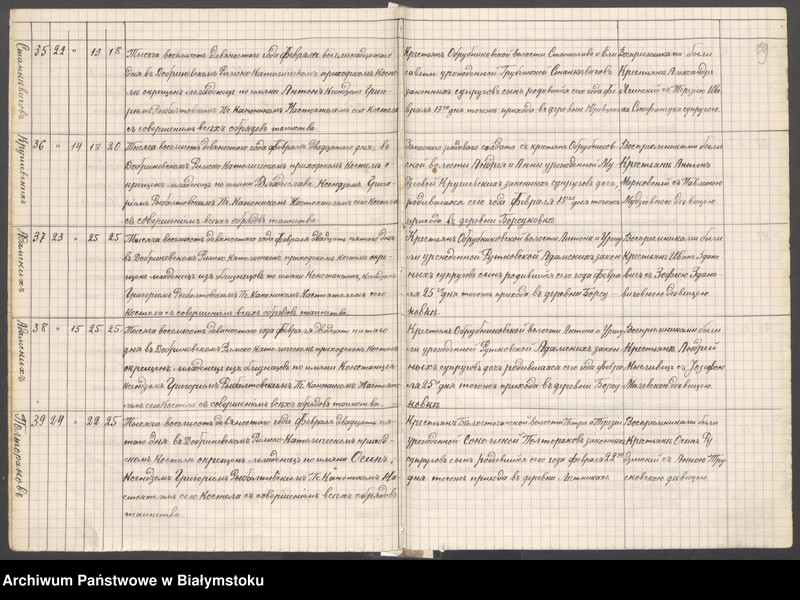 Станкевичовъ
35 22 " 13 18
Тысяча восемьсотъ девяностаго года Февраля восемнадцатаго
дня въ Добриневскомъ Римско-Католическомъ приходскомъ Косте-
лѣ окрещенъ младенецъ по имени Антонъ Ксендзомъ Григо-
ріемъ Рыбалтовскимъ Пс. Каноникомъ Настоятелемъ сего Костела
съ совершеніемъ всѣхъ обрядовъ таинства.
Крестьянъ Обрубниковской волости Станислава и Ели-
саветы урожденной Станкевичовъ
законныхъ супруговъ сынъ родившійся сего года Фе-
враля 13го дня тогожъ прихода въ деревни
Воспріемниками были
Крестьяне Александръ
съ Терезіею
супругою.
Крушевскихъ
36 " 14 18 20
Тысяча восемьсотъ девяностаго года февраля двадцатаго дня, въ
Добриневскомъ Римско-Католическомъ приходскомъ Костелѣ о-
крещенъ младенецъ по имени Владислава Ксендзомъ Григо-
ріемъ Рыбалтовскимъ Пс. Каноникомъ Настоятелемъ сего Костела
съ совершеніемъ всѣхъ обрядовъ таинства.
Запаснаго рядоваго солдата съ крестьянъ Обрубников-
ской волости Андрея и Анны урожденной
Крушевскихъ законныхъ супруговъ дочь,
родившаяся сего года Февраля 18го дня тогожъ
прихода въ деревни Борсуковкѣ
Воспріемниками были
Крестьяне Антонъ
Марковскій съ Павлиною
дѣвицею
Адамскихъ
37 23 " 25 25
Тысяча восемьсотъ девяностаго года Февраля двадцать пятаго дня
въ Добриневскомъ Римско Католическомъ приходскомъ Костелѣ окре-
щенъ младенецъ изъ близнецовъ по имени Константинъ, Ксендзомъ
Григоріемъ Рыбалтовскимъ Пс. Каноникомъ Настоятелемъ сего
Костела съ совершеніемъ всѣхъ обрядовъ таинства.
Крестьянъ Обрубниковской волости Антона и Уршу-
ли урожденной Рутковской Адамскихъ закон-
ныхъ супруговъ сынъ родившійся сего года Февра-
ля 25го дня тогожъ прихода въ деревни Борсу-
ковкѣ.
Воспріемниками были
Крестьяне Иванъ Здано-
вичъ съ Зофіею Здано-
вичовною дѣвицею.
Адамскихъ
38 " 15 25 25
Тысяча восемьсотъ девяностаго года февраля двадцать пятаго
дня въ Добриневскомъ Римско Католическомъ приходскомъ Костелѣ
окрещенъ младенецъ изъ близнецовъ по имени Констанція
Ксендзомъ Григоріемъ Рыбалтовскимъ Пс. Каноникомъ Настояте-
лемъ сего Костела съ совершеніемъ всѣхъ обрядовъ таинства.
Крестьянъ Обрубниковской волости Антона и Уршу-
ли урожденной Рутковской Адамскихъ закон-
ныхъ супруговъ дочь родившаяся сего года февра-
ля 25го дня тогожъ прихода въ деревни Борсу-
ковкѣ
Воспріемниками были
Крестьяне Андрей
съ Юзефою
дѣвицею.
Полтораковъ
39 24 " 22 25
Тысяча восемьсотъ девяностаго года Февраля двадцать пя-
таго дня въ Добриневскомъ Римско-Католическомъ приход-
скомъ Костелѣ окрещенъ младенецъ по имени Осипъ,
Ксендзомъ Григоріемъ Рыбалтовскимъ Пс. Каноникомъ На-
стоятелемъ сего Костела съ совершеніемъ всѣхъ обрядовъ
таинства.
Крестьянъ Бѣлосточанской волости Петра и Терезіи
урожденной Сокольской Полтораковъ законныхъ
супруговъ сынъ родившійся сего года февраля 22го
дня тогожъ прихода въ деревни Лѣтникахъ
Воспріемниками были
Крестьяне Осипъ
съ Анною Тру-
сковскою дѣвицею
Archiwum Państwowe w Białymstoku